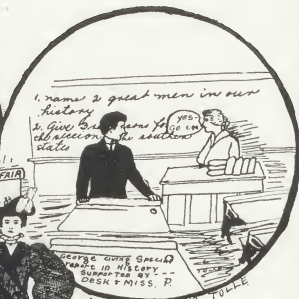 1. name 2 great men in our
history
2. Give 3 reasons for
the secession the southern
states
YES-
GO ON
FAIR
George Giving Special
report in History
Supported By --
DESK & MISS. P.
TOLLE